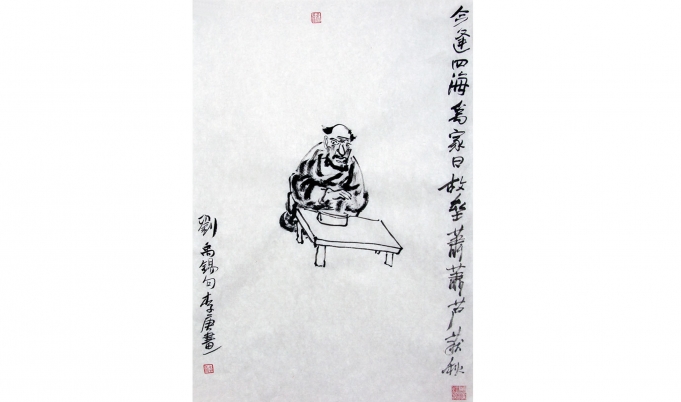 今逢四海為家日故垒蕭蕭芦荻秋
劉禹錫句李庚畫